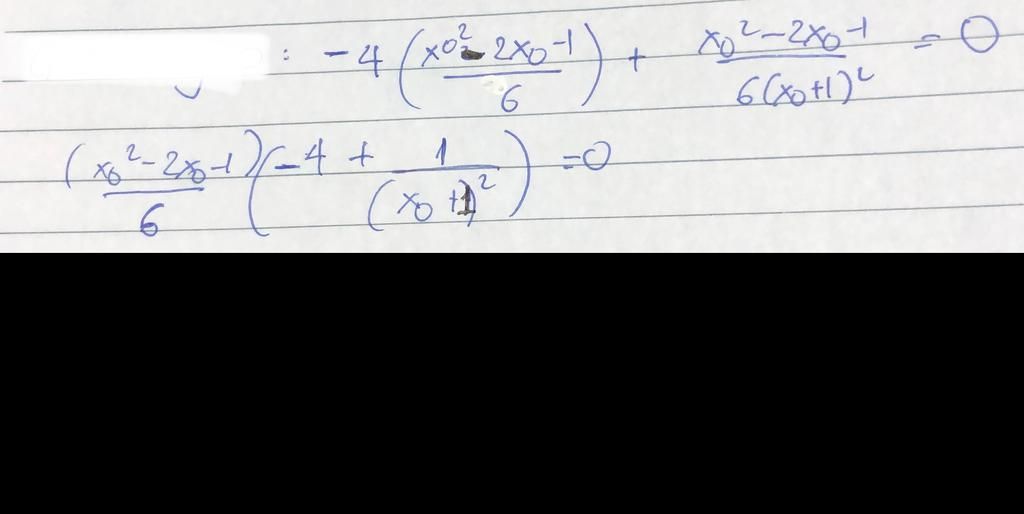 : -4 (x0² - 2x0 -1 / 6) + x0² - 2x0 -1 / 6(x0+1)² = 0
(x0² - 2x0 -1 / 6)(-4 + 1 / (x0 +1)²) = 0